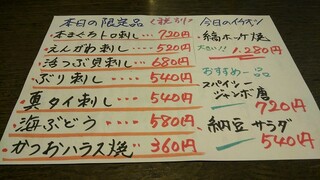 本日の限定品 (税別)
本まぐろトロ刺し・・・720円
えんがわ刺し・・・・520円
活つぶ貝刺し・・・680円
ぶり刺し・・・・540円
真タイ刺し・・・・540円
海ぶどう・・・・580円
かつおハラス焼・・・360円
今日のイチオシ
縞ホッケ焼
大きい!! 1.280円
おすすめ一品
スパイシー
ジャンボ唐
720円
納豆サラダ
540円